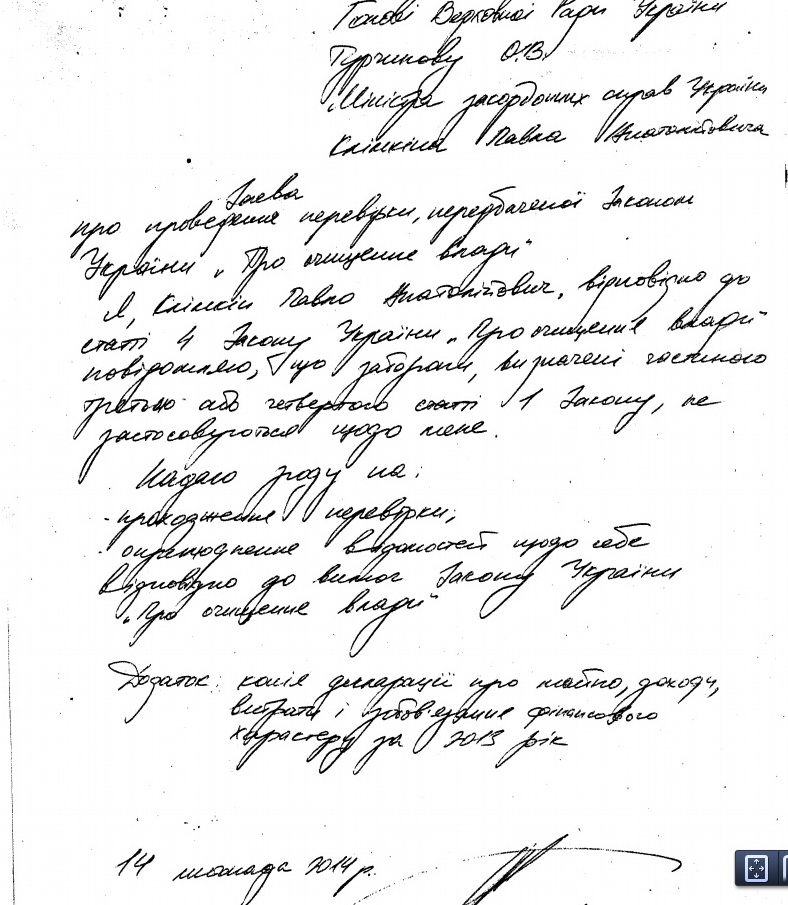 Голові Верховної Ради України
Турчинову О.В.
Міністра закордонних справ України
Клімкіна Павла Анатолійовича
Заява
про проведення перевірки, передбаченої Законом
України „Про очищення влади"
Я, Клімкін Павло Анатолійович, відповідно до
статті 4 Закону України „Про очищення влади"
повідомляю, що заборони, визначені частиною
третьою або четвертою статті 1 Закону, не
застосовуються щодо мене.
Надаю згоду на:
- проходження перевірки;
- оприлюднення відомостей щодо себе
відповідно до вимог Закону України
„Про очищення влади"
Додаток: копія декларації про майно, доходи,
витрати і зобов'язання фінансового
характеру за 2013 рік
14 листопада 2014 р.